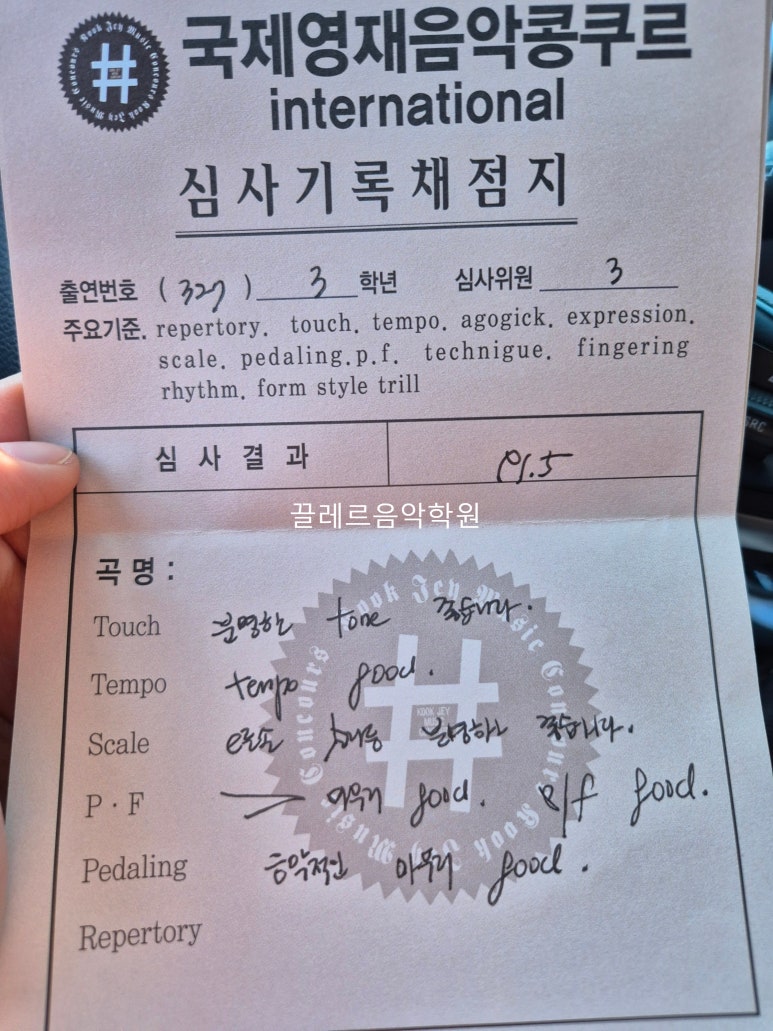 Kook Jey Music Concours
국제영재음악콩쿠르
international
심사기록채점지
출연번호 (327) 3 학년 심사위원 3
주요기준. repertory. touch. tempo. agogick. expression.
scale. pedaling.p.f. technigue. fingering
rhythm. form style trill
심사결과 91.5
끌레르음악학원
곡명:
Touch 분명한 tone 좋습니다.
Tempo tempo good.
Scale 분명하고 좋습니다.
KOOK JEY
P·F good. p/f good.
Pedaling 음악적인 마무리 good.
Repertory